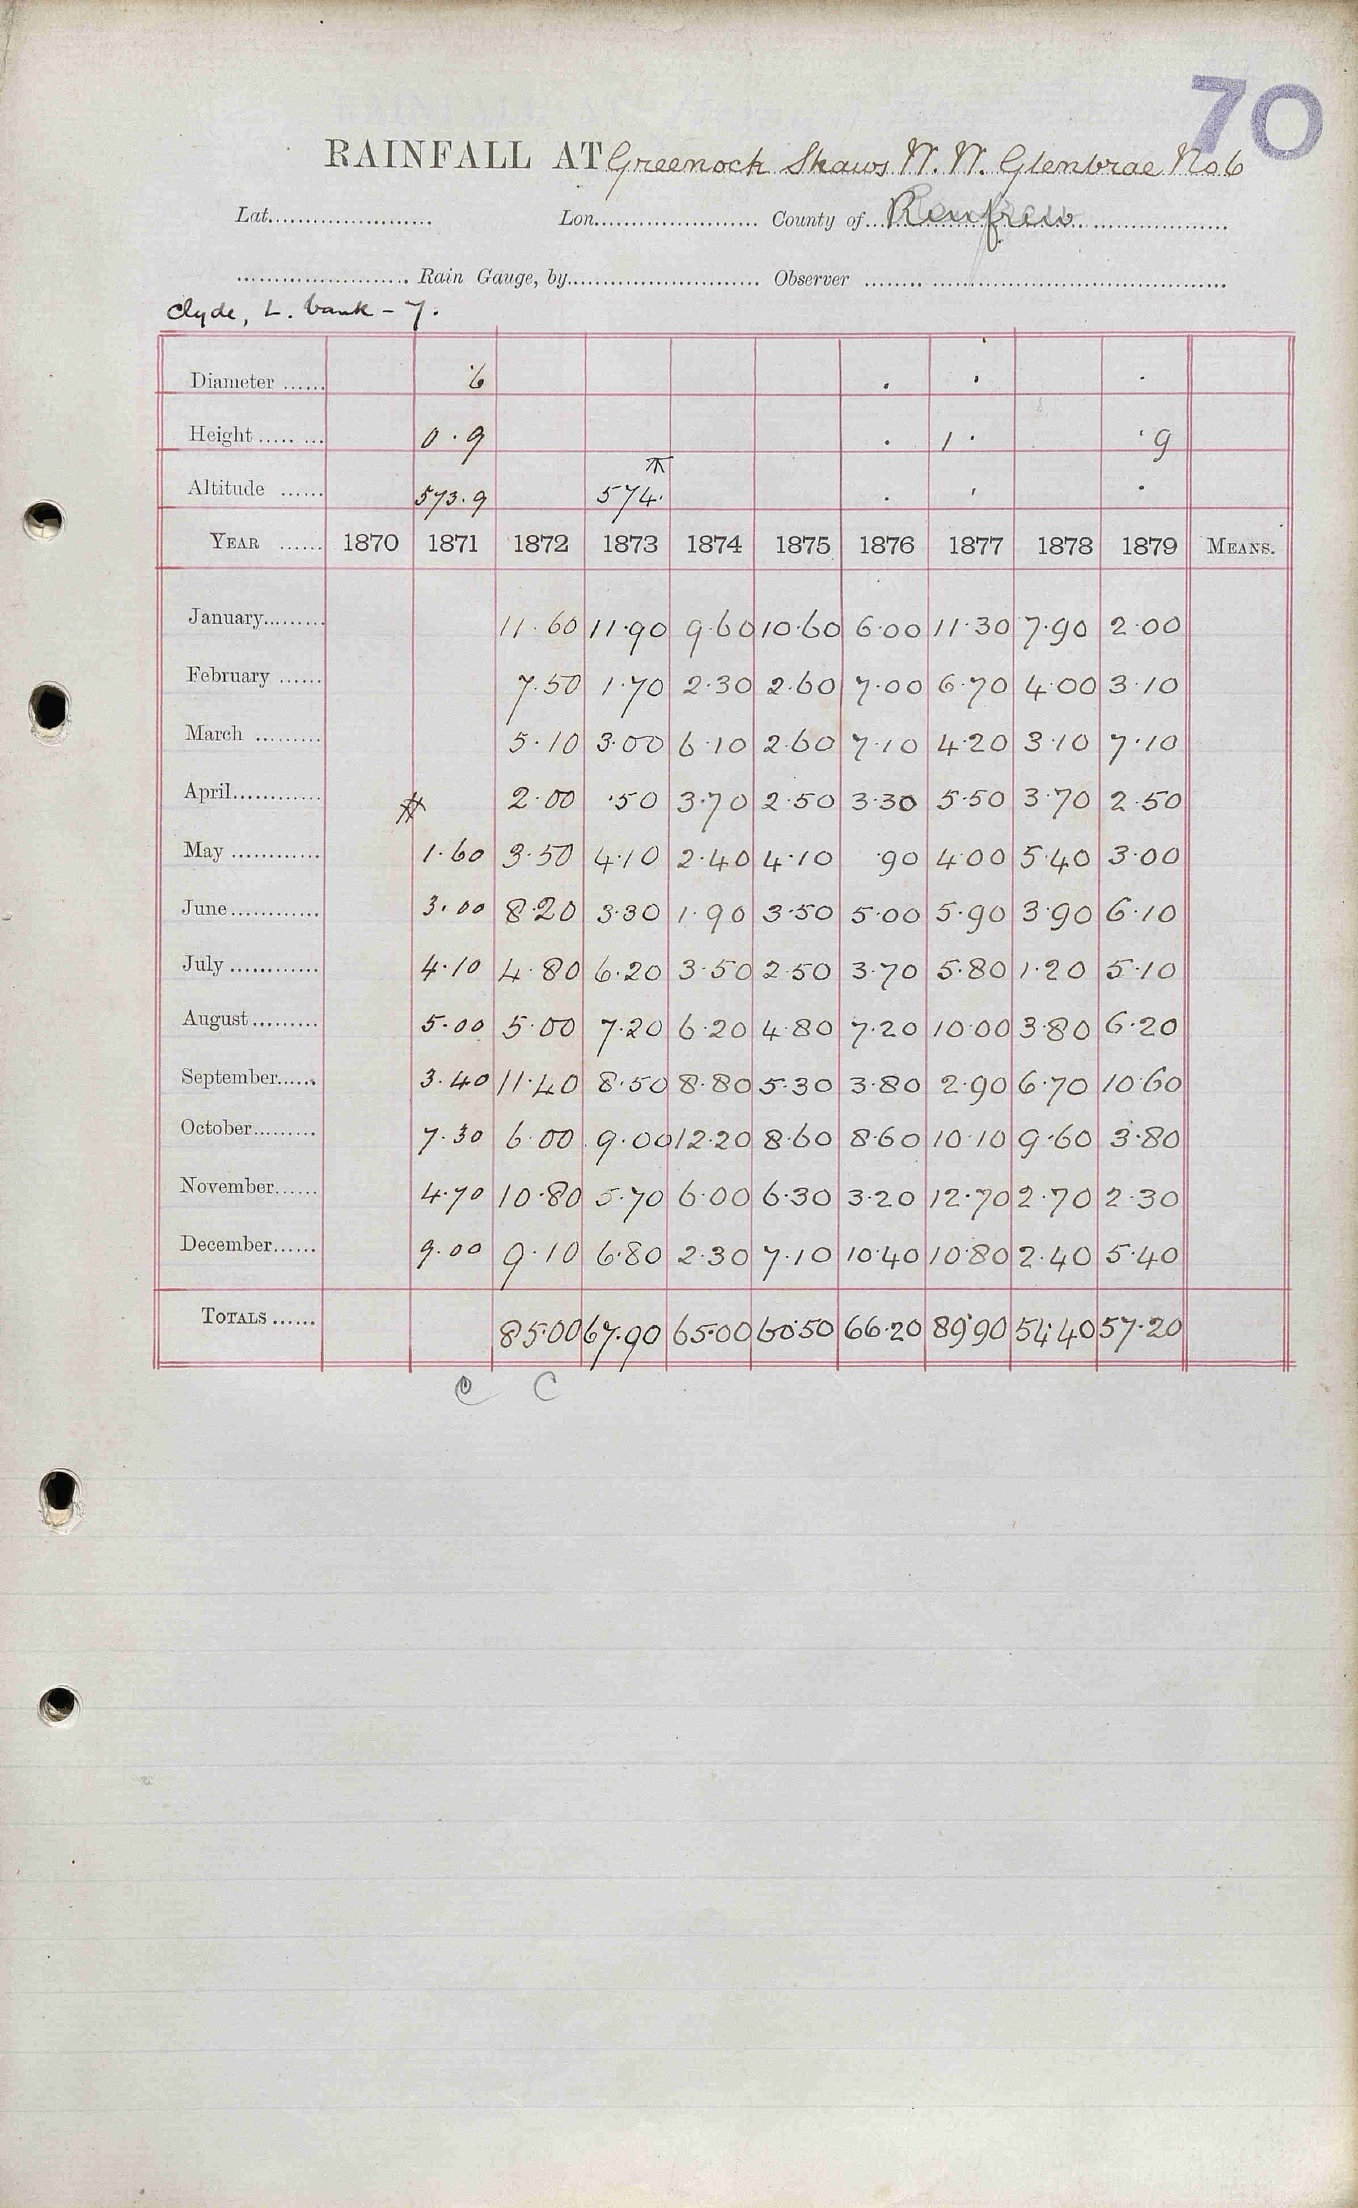 70
RAINFALL AT Greenock Shaws W. W. Glenbrae No 6
Lat...................... Lon...................... County of Renfrew
...................... Rain Gauge, by.......................... Observer ..............................
Clyde, L. bank - 7.
Diameter ...... 6 . . .
Height ........ 0.9 . 1. .9
Altitude ...... 573.9 574. . . .
YEAR ...... 1870 1871 1872 1873 1874 1875 1876 1877 1878 1879 MEANS.
January......... 11.60 11.90 9.60 10.60 6.00 11.30 7.90 2.00
February ...... 7.50 1.70 2.30 2.60 7.00 6.70 4.00 3.10
March ......... 5.10 3.00 6.10 2.60 7.10 4.20 3.10 7.10
April............ 2.00 .50 3.70 2.50 3.30 5.50 3.70 2.50
May ............ 1.60 3.50 4.10 2.40 4.10 .90 4.00 5.40 3.00
June............ 3.00 8.20 3.30 1.90 3.50 5.00 5.90 3.90 6.10
July ............ 4.10 4.80 6.20 3.50 2.50 3.70 5.80 1.20 5.10
August......... 5.00 5.00 7.20 6.20 4.80 7.20 10.00 3.80 6.20
September...... 3.40 11.40 8.50 8.80 5.30 3.80 2.90 6.70 10.60
October......... 7.30 6.00 9.00 12.20 8.60 8.60 10.10 9.60 3.80
November...... 4.70 10.80 5.70 6.00 6.30 3.20 12.70 2.70 2.30
December...... 9.00 9.10 6.80 2.30 7.10 10.40 10.80 2.40 5.40
TOTALS ...... 85.00 67.90 65.00 60.50 66.20 89.90 54.40 57.20
C C